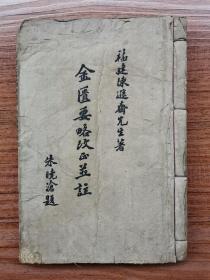 福建陳遜齋先生著
金匱要略改正並註
朱曉滄題